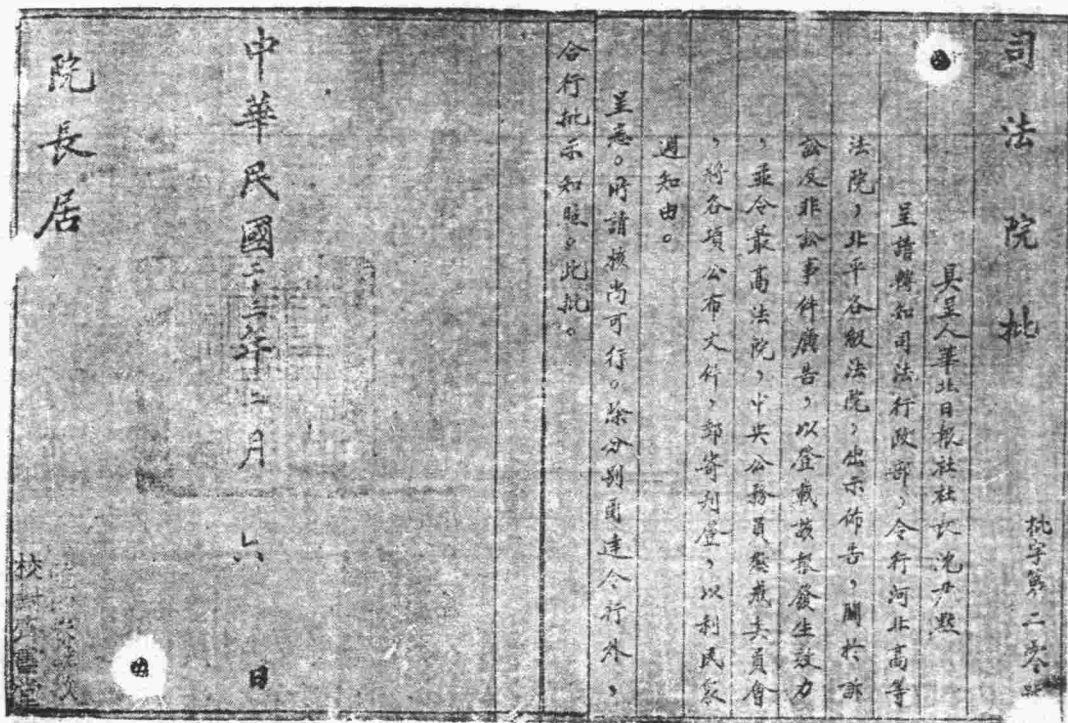 司法院批
批字第二零號
具呈人華北日報社社長沈尹默
呈請轉知司法行政部，令行河北高等
法院，北平各級法院，出示佈告，關於訴
訟及非訟事件廣告，以登載該報發生效力
，並令最高法院，中央公務員懲戒委員會
，將各項公布文件，郵寄刊登，以利民眾
週知由。
呈悉。所請核尚可行。除分別函達令行外，
合行批示知照。此批。
中華民國二十三年二月六日
院長居
校對